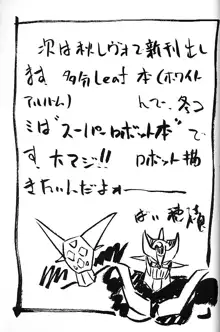 次は秋レヴォで新刊出し
ます 多分Leaf本(ホワイト
アルバム) んで、冬コ
ミは"スーパーロボット本"で
す、大マジ!! ロボット描
きたいんだよォー
ばい